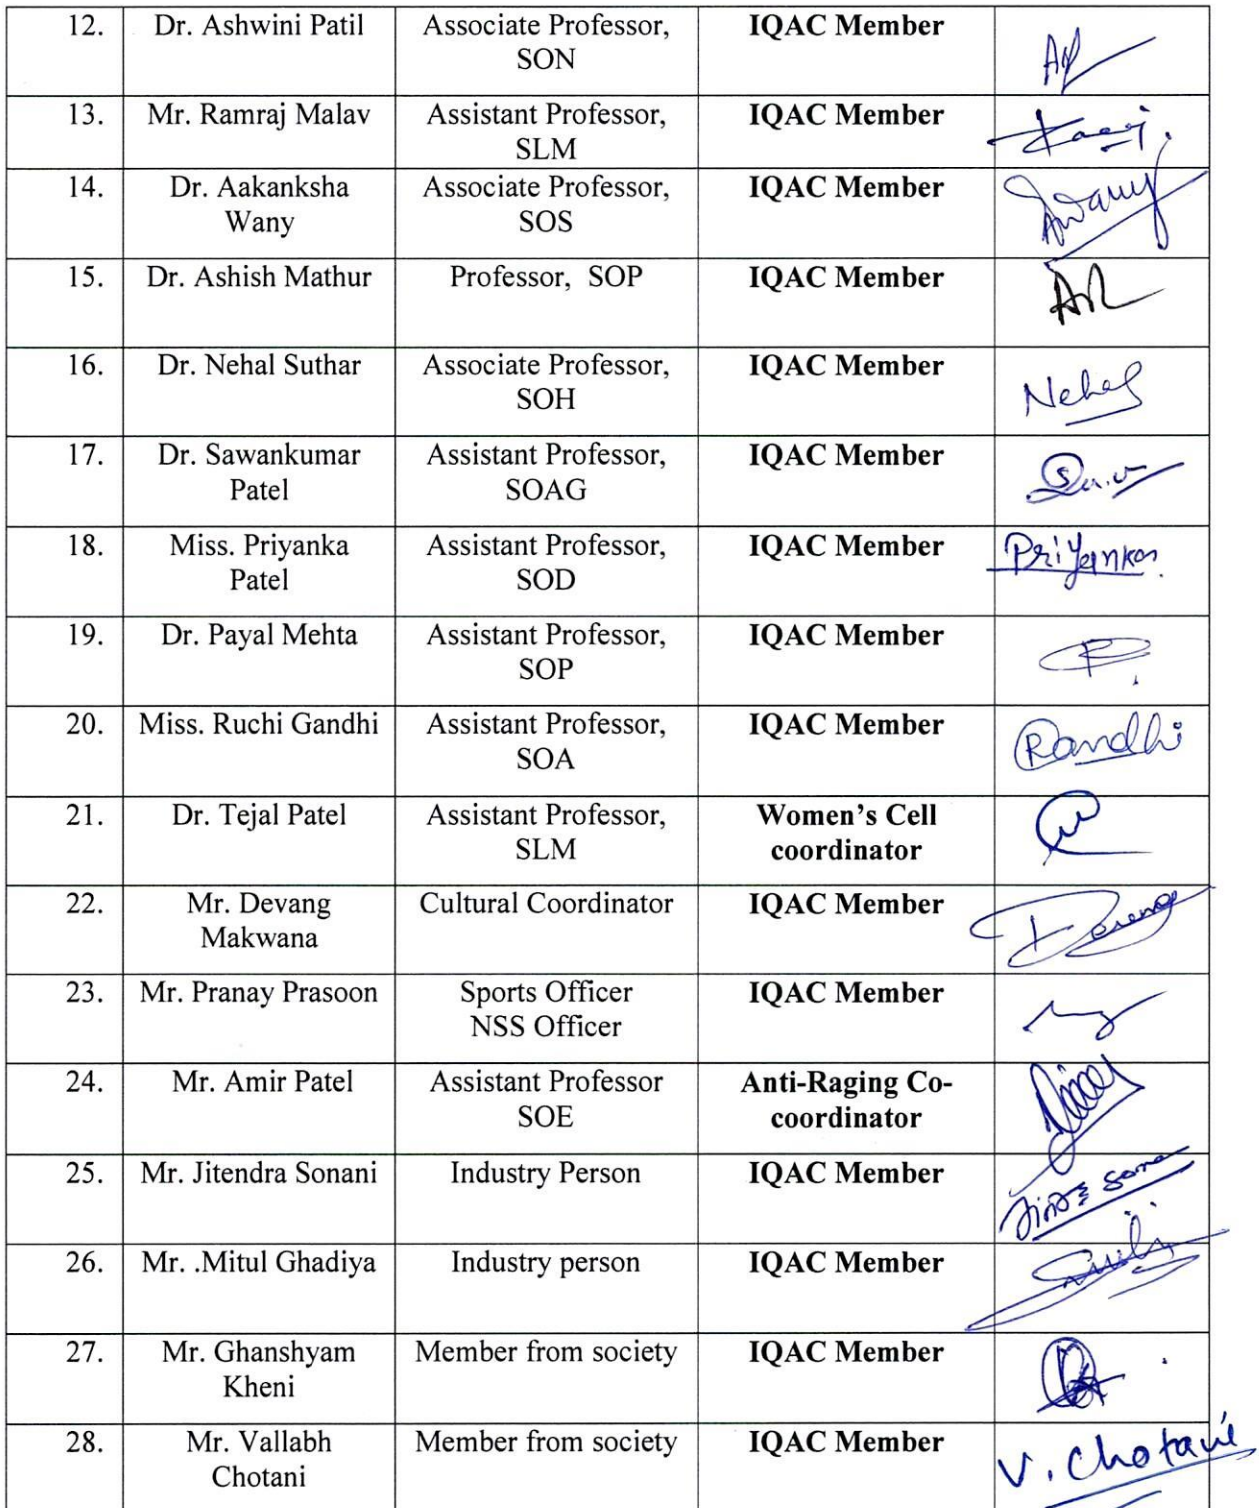 12. Dr. Ashwini Patil Associate Professor, IQAC Member
SON
13. Mr. Ramraj Malav Assistant Professor, IQAC Member
SLM
14. Dr. Aakanksha Associate Professor, IQAC Member
Wany SOS
15. Dr. Ashish Mathur Professor, SOP IQAC Member
16. Dr. Nehal Suthar Associate Professor, IQAC Member
SOH
Nehal
17. Dr. Sawankumar Assistant Professor, IQAC Member
Patel SOAG
18. Miss. Priyanka Assistant Professor, IQAC Member Priyanka
Patel SOD
19. Dr. Payal Mehta Assistant Professor, IQAC Member
SOP
20. Miss. Ruchi Gandhi Assistant Professor, IQAC Member
SOA
21. Dr. Tejal Patel Assistant Professor, Women's Cell
SLM coordinator
22. Mr. Devang Cultural Coordinator IQAC Member
Makwana
23. Mr. Pranay Prasoon Sports Officer IQAC Member
NSS Officer
24. Mr. Amir Patel Assistant Professor Anti-Raging Co-
SOE coordinator
25. Mr. Jitendra Sonani Industry Person IQAC Member
26. Mr. .Mitul Ghadiya Industry person IQAC Member
27. Mr. Ghanshyam Member from society IQAC Member
Kheni
28. Mr. Vallabh Member from society IQAC Member
Chotani
V. Chotani